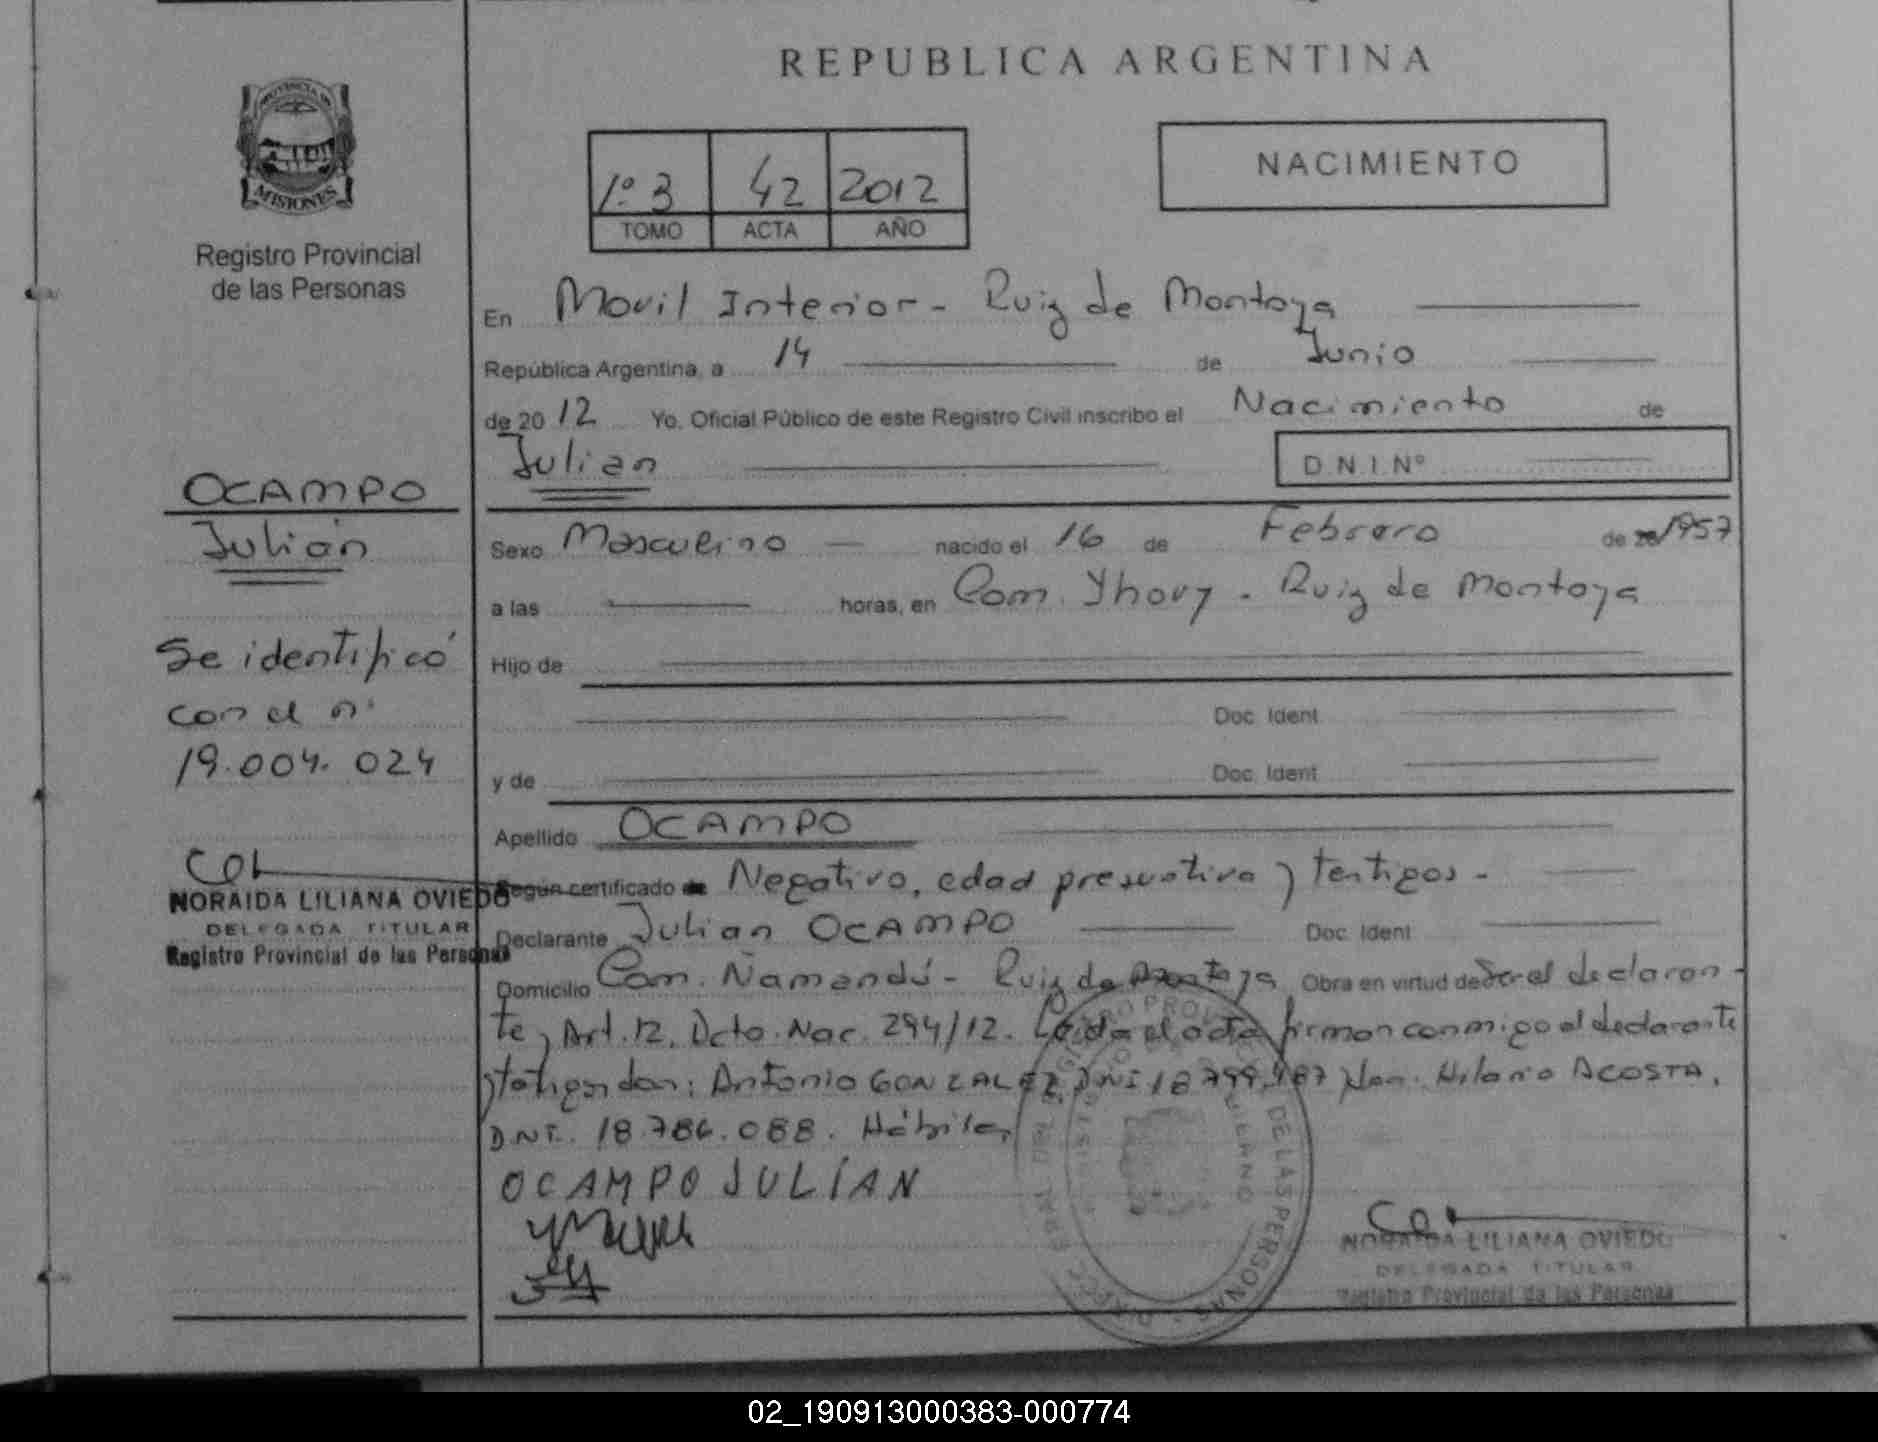 REPUBLICA ARGENTINA
PROVINCIA DE
MISIONES
Registro Provincial
de las Personas
1º 3 42 2012
TOMO ACTA AÑO
NACIMIENTO
En Movil Interior - Ruiz de Montoya
República Argentina, a 14 de Junio
de 20 12 Yo, Oficial Público de este Registro Civil inscribo el Nacimiento de
Julian
D.N.I.Nº
OCAMPO
Julián
Se identificó
con el nº
19.004.024
NORAIDA LILIANA OVIEDO
DELEGADA TITULAR
Registro Provincial de las Personas
Sexo Masculino nacido el 16 de Febrero de 20 1957
a las horas, en Com. Yhovy - Ruiz de Montoya
Hijo de
Doc. Ident
y de Doc. Ident
Apellido OCAMPO
Según certificado de Negativo, edad presuntiva y testigos -
Declarante Julian OCAMPO Doc. Ident
Domicilio Com. Ñamandú - Ruiz de Montoya Obra en virtud de Ser el declaran-
te, Art. 12, Dcto. Nac. 294/12. Leida el acta firman conmigo el declarante
Antonio GONZALEZ, DNI 18.799. Hilario ACOSTA,
DNI. 18.786.088. Hábiles
OCAMPO JULIÁN
NORAIDA LILIANA OVIEDO
DELEGADA TITULAR
Registro Provincial de las Personas
DE LAS PERSONAS
02_190913000383-000774